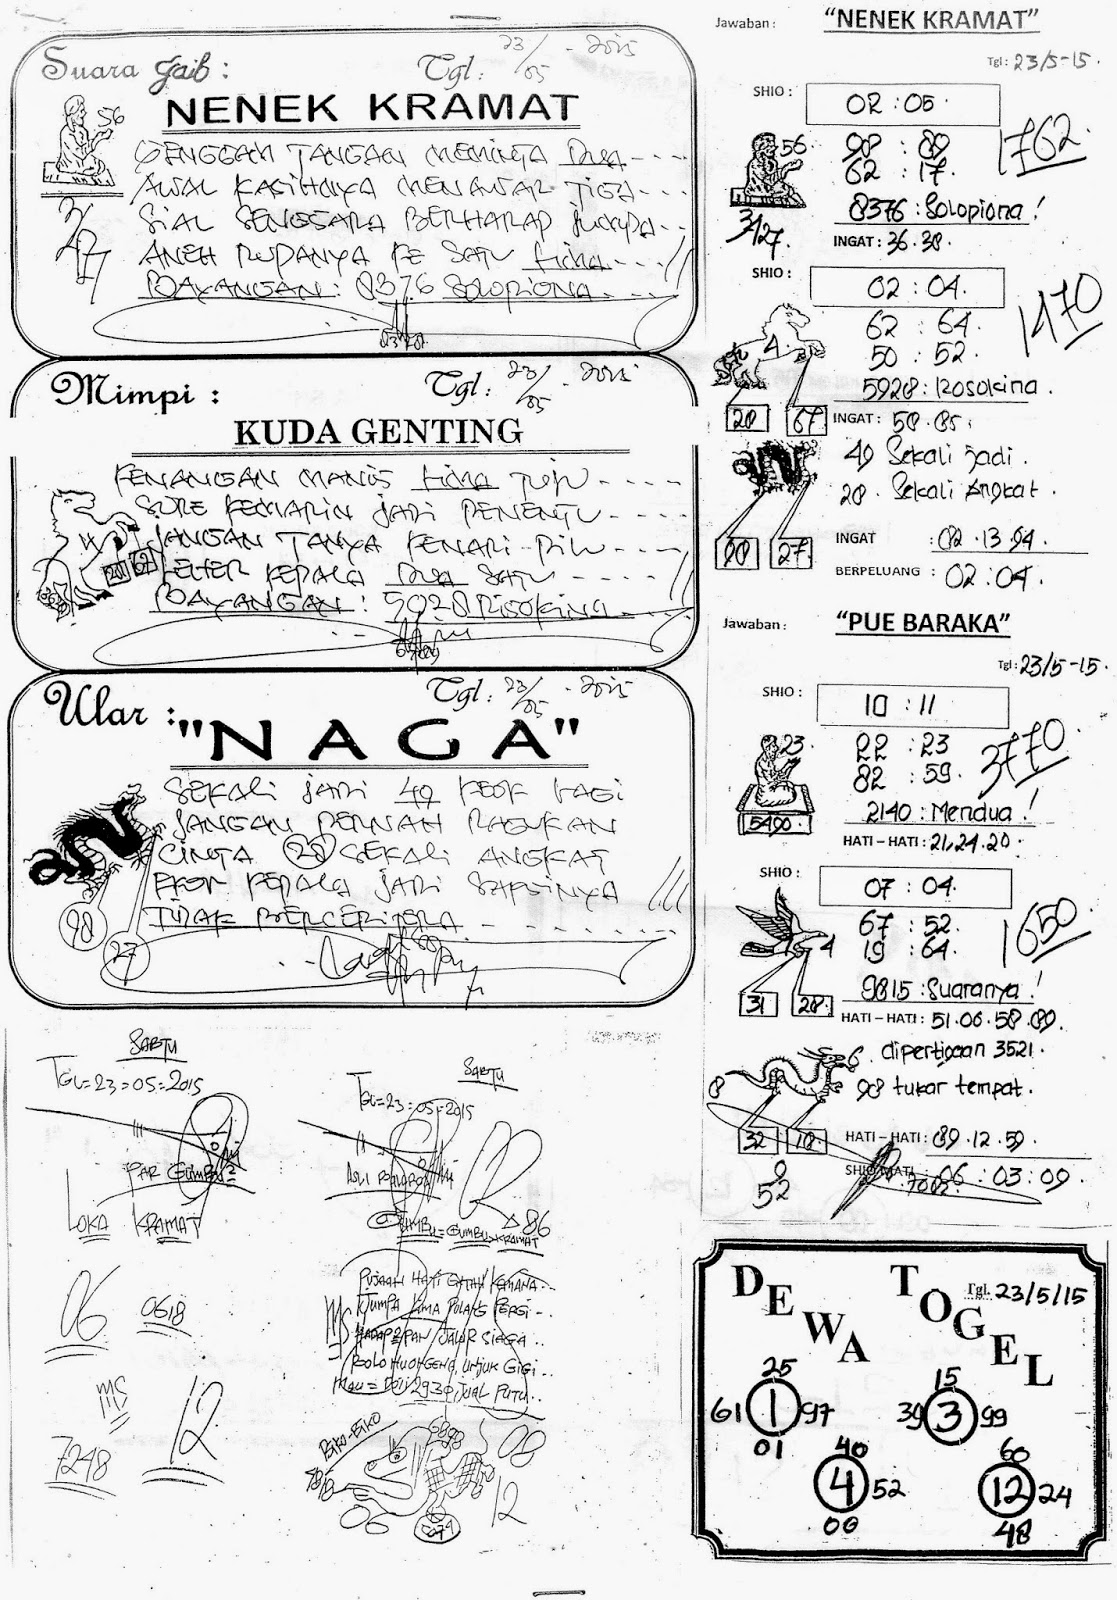 Suara Gaib :
Tgl : 23/05 - 2015
NENEK KRAMAT
56
GENGGAM TANGAN MEMINTA DUA - - - -
AWAL KASIHNYA MENAWAR TIGA - - -
3/27
SIAL SENGSARA BERHARAP JUMPA - -
ANEH RUPANYA KE SATU LIMA - - -
BAYANGAN : 8376 SOLOPIONA - - -
Mimpi :
Tgl : 23/05 - 2015
KUDA GENTING
KENANGAN MANIS LIMA TUJU - - - -
SORE KEMARIN JADI PENENTU - - - -
JANGAN TANYA KENARI - PILU - - - -
20 67
KEPALA DUA SATU - - - -
BAYANGAN : 5928
Ular :
Tgl : 23/05 - 2015
"NAGA"
SEKALI JADI 49 EKOR LAGI
JANGAN PERNAH RAGUKAN
CINTA 28 SEKALI ANGKAT
EKOR KEPALA JADI
TIDAK BERCERITERA - - - -
98
27
SABTU
TGL = 23 = 05 = 2015
PAR GUMBU2
LOKA KRAMAT
06
0618
MS
7248
12
SABTU
TGL = 23 = 05 = 2015
ASLI
GUMBU = GUMBU = KRAMAT
86
PUJAAN HATI KEMANA . .
JUMPA LIMA PULANG PERGI . .
MS
JALUR SIAGA . .
UNJUK GIGI . .
JUAL PUTU . .
08
06
12
Jawaban : "NENEK KRAMAT"
Tgl : 23/5-15.
SHIO : 02 : 05.
56
98 : 89
62 : 17.
1762
8376 : Solopiona !
3/27.
INGAT : 36.38.
SHIO : 02 : 04.
4
62 : 64.
50 : 52.
1470
5928 : Rosokina.
20 67
INGAT : 58.85.
49 Sekali jadi .
28. Sekali Angkat .
98 27
INGAT : 82.13.94.
BERPELUANG : 02 : 04.
Jawaban : "PUE BARAKA"
Tgl : 23/5-15.
SHIO : 10 : 11
23.
22 : 23
82 : 59.
3770
5490.
2140 : Mendua !
HATI – HATI : 21,24.20.
SHIO : 07 : 04.
4
67 : 52.
19 : 64.
1650
9815 : Suaranya !
31 28
HATI – HATI : 51.06.58.89.
8
6. dipertigaan 3521.
98 tukar tempat.
32 18
HATI – HATI : 89.12.59.
9
52
SHIO MATI : 06 : 03 : 09.
DEWA TOGEL
Tgl. 23/5/15
25
61 1 97
01
15
39 3 99
40
4 52
00
60
12 24
48